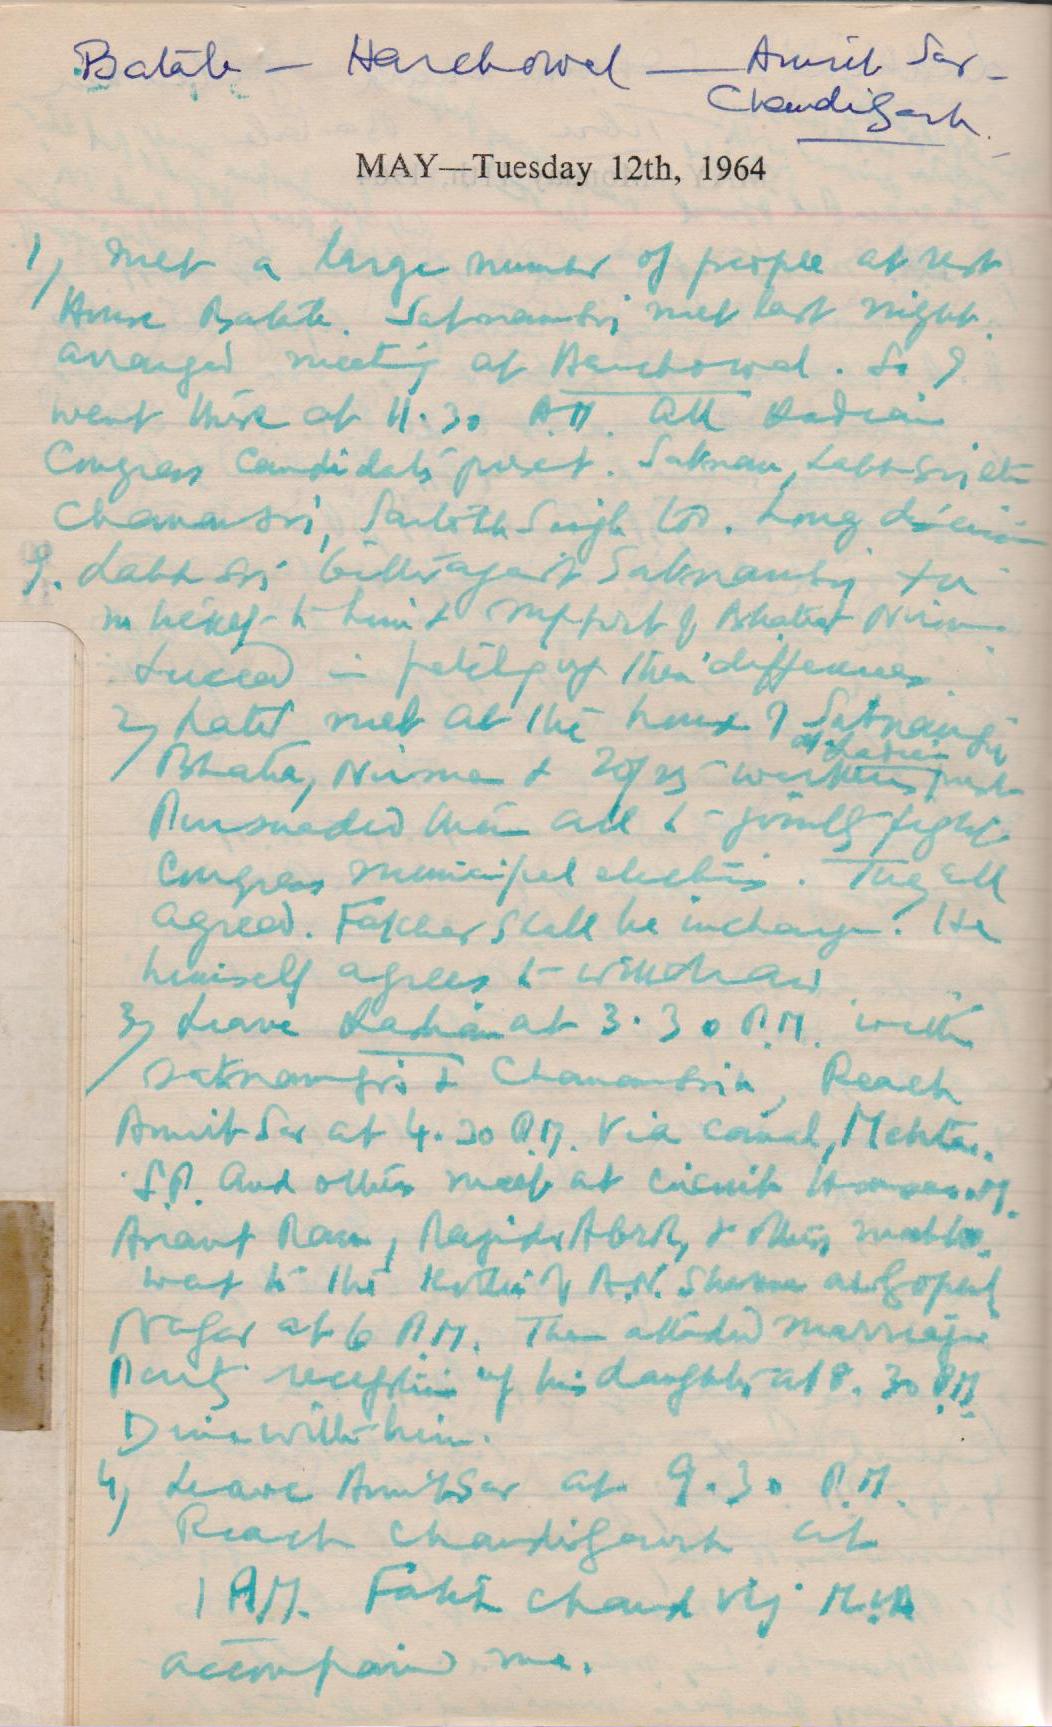 Batala — Harchowal — Amrit Sar -
Chandigarh.
MAY—Tuesday 12th, 1964
1, met a large number of people at rest
House Batala. Satnamsij met last night.
arranged meeting at Harchowal. So I
went there at 11.30 A.M. All Kadian
Congress candidates present. Satnam,
Chanansi, Singh too. Long
I. bitter against Satnamsij for
him & support of Bhatia
in patching up their differences.
2, Later met at the house of Satnamsij
at Kadian
Bhatia, & 20 or 25 workers present
Pursuaded them all to jointly fight
Congress municipal elections. They all
agreed. Fakher shall be incharge. He
himself agrees to withdraw
3, Leave Kadian at 3.30 P.M. with
Satnamsij & Chanansi, Reach
Amrit Sar at 4.30 P.M. Via canal, Mehta.
S.P. and others meet at circuit House.
Anant Ram, & others
went to the Kothi of A.N. Sharma at Gopal
Nagar at 6 P.M. Then attended marriage
Party reception of his daughter at 8.30 PM
Dine with him.
4, Leave AmritSar at 9.30 P.M.
Reach Chandigarh at
1 AM. Fakir Chand Vij M.L.A
accompanied me.